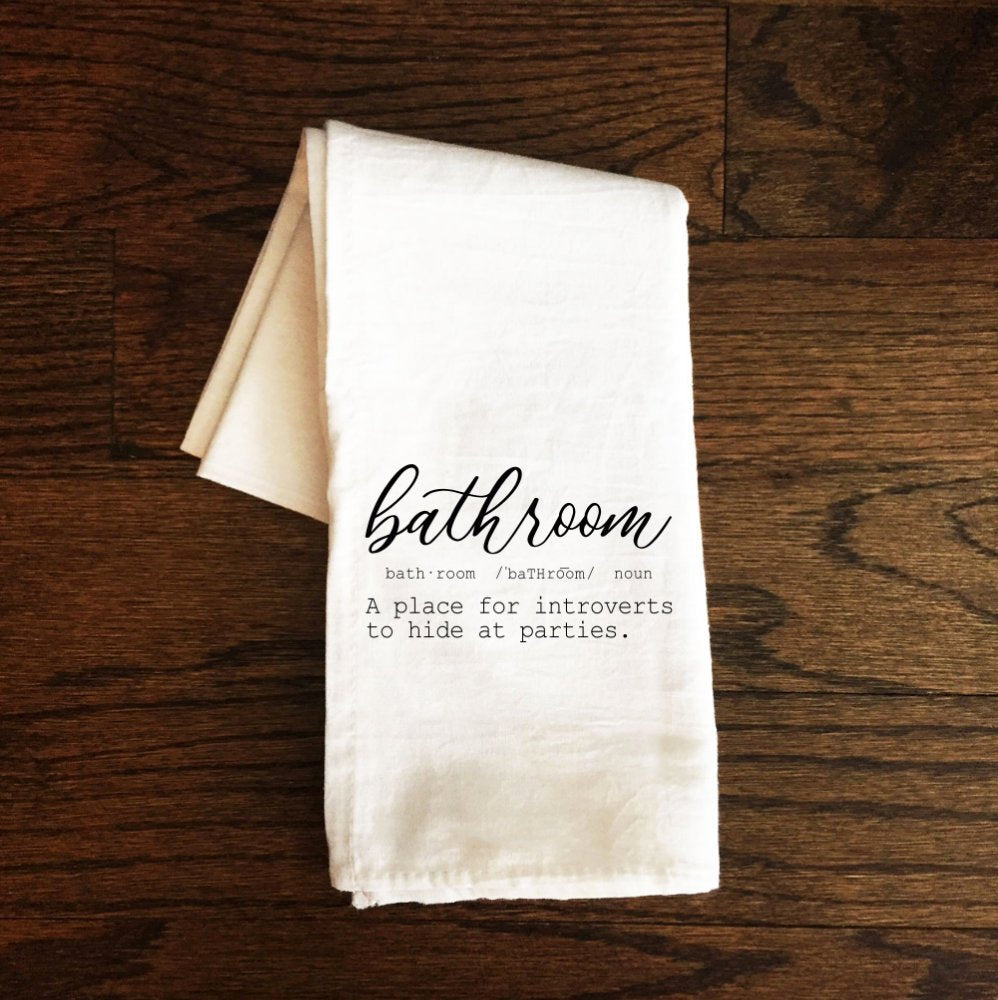 bathroom
bath·room /ˈbaTHro͞om/ noun
A place for introverts
to hide at parties.